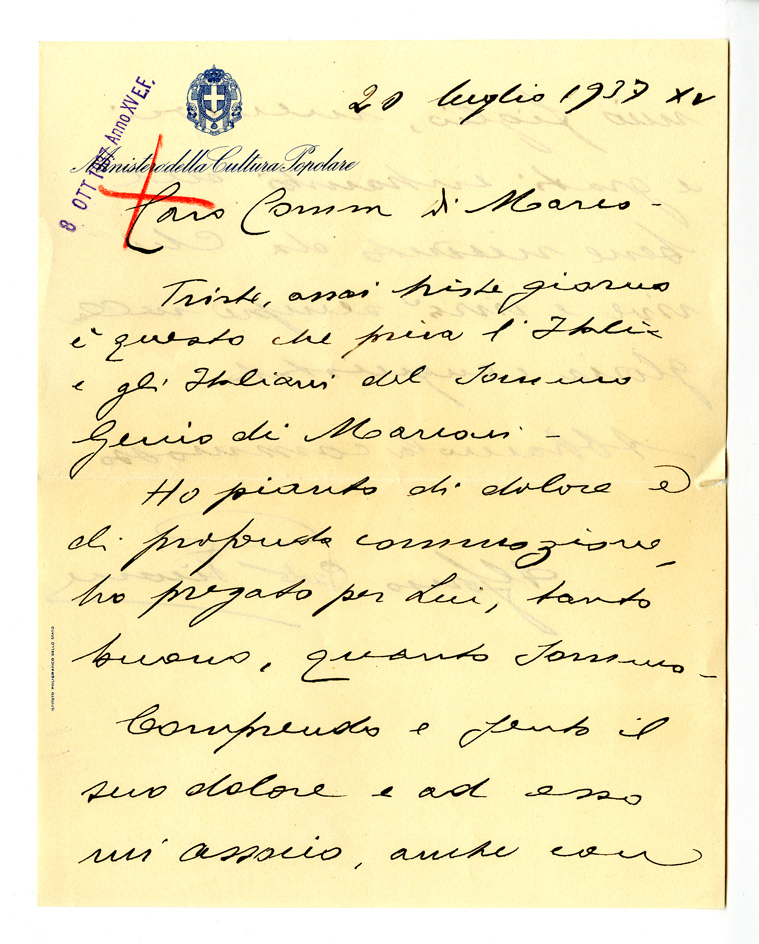 20 luglio 1937 XV
8 OTT 1937 Anno XV E.F.
Ministero della Cultura Popolare
Caro Comm di Marco -
Triste, assai triste giorno
è questo che priva l'Italia
e gli Italiani del Sommo
Genio di Marconi -
Ho pianto di dolore e
di profonda commozione,
ho pregato per Lui, tanto
buono, quanto Sommo -
Comprendo e sento il
suo dolore e ad esso
mi associo, anche con
ISTITUTO POLIGRAFICO DELLO STATO